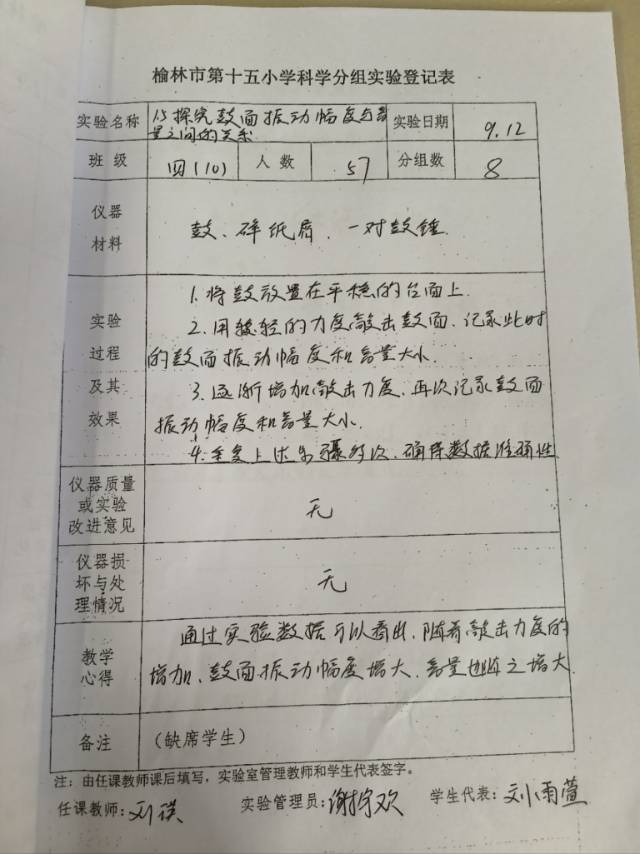 榆林市第十五小学科学分组实验登记表
实验名称 1.5探究鼓面振动幅度与音量之间的关系 实验日期 9.12
班 级 四(10) 人 数 57 分组数 8
仪器材料 鼓、碎纸屑、一对鼓锤.
实验过程及其效果
1.将鼓放置在平稳的台面上.
2.用较轻的力度敲击鼓面、记录此时
的鼓面振动幅度和音量大小.
3.逐渐增加敲击力度、再次记录鼓面
振动幅度和音量大小.
4.重复上述步骤多次、确保数据准确性
仪器质量或实验改进意见 无
仪器损坏与处理情况 无
教学心得
通过实验数据可以看出、随着敲击力度的
增加、鼓面振动幅度增大、音量也随之增大
备注 (缺席学生)
注：由任课教师课后填写，实验室管理教师和学生代表签字。
任课教师:刘 实验管理员:谢 欢 学生代表:刘雨萱